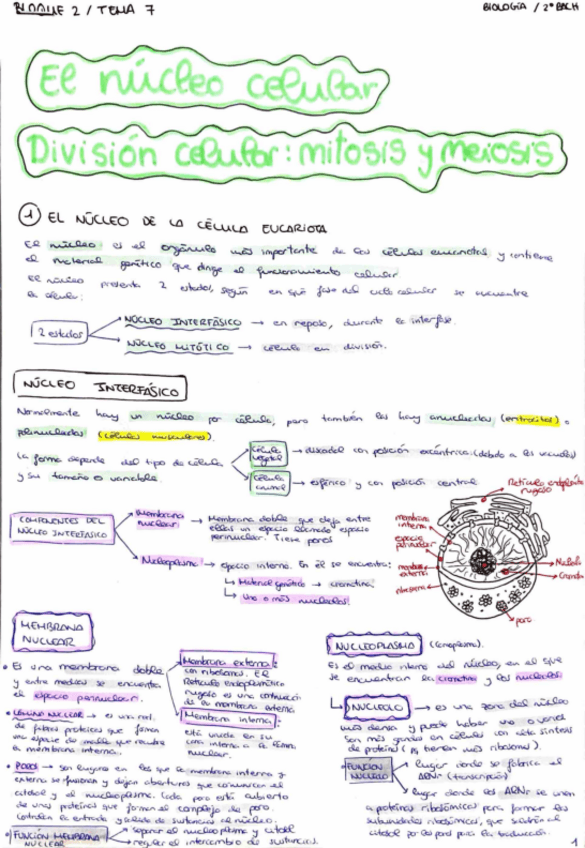 BLOQUE 2 / TEMA 7
BIOLOGÍA / 2º BACH
El núcleo celular
División celular: mitosis y meiosis
1 EL NÚCLEO DE LA CÉLULA EUCARIOTA
El núcleo es el orgánulo más importante de las células eucariotas y contiene
el material genético que dirige el funcionamiento celular
El núcleo presenta 2 estados, según en qué fase del ciclo celular se encuentre
la célula:
2 estados
NÚCLEO INTERFÁSICO → en reposo, durante la interfase.
NÚCLEO MITÓTICO → célula en división.
NÚCLEO INTERFÁSICO
Normalmente hay un núcleo por célula, pero también las hay anucleadas (eritrocitos) o
polinucleadas (células musculares).
La forma depende del tipo de célula
y su tamaño es variable.
célula vegetal → discoidal con posición excéntrica (debido a las vacuolas)
célula animal → esférico y con posición central.
COMPONENTES DEL
NÚCLEO INTERFÁSICO
Membrana
nuclear
→ Membrana doble que deja entre
ellas un espacio llamado espacio
perinuclear. Tiene poros
Nucleoplasma → espacio interno. En él se encuentra:
↳ Material genético → cromatina.
↳ Uno o más nucleolos.
Retículo endoplasm
rugoso
membrana
interna
espacio
perinuclear
membrana
externa
ribosoma
Nucleolo
Cromatina
poro
MEMBRANA
NUCLEAR
• Es una membrana doble
y entre medias se encuentra
el espacio perinuclear.
Membrana externa:
con ribosomas. El
Retículo endoplasmático
rugoso es una continuación
de la membrana externa
Membrana interna:
está unida en su
cara interna a la lámina
nuclear.
• LÁMINA NUCLEAR → es una red
de fibras proteicas que forman
una especie de malla que recubre
la membrana interna.
• POROS → son lugares en los que la membrana interna y
externa se fusionan y dejan aberturas que comunican el
citosol y el nucleoplasma. Cada poro está cubierto
de unas proteínas que forman el complejo de poro.
Controlan la entrada y salida de sustancias al núcleo.
• FUNCIÓN MEMBRANA
NUCLEAR
separar el nucleoplasma y citosol
regular el intercambio de sustancias.
NUCLEOPLASMA (carioplasma).
Es el medio interno del núcleo, en el que
se encuentran la cromatina y los nucleolos
↳ NUCLEOLO → es una zona del núcleo
más densa y puede haber uno o varios
son más grandes en células con alta síntesis
de proteínas (pq tienen más ribosomas).
FUNCIÓN
NUCLEOLO
lugar donde se fabrica el
ARNr (transcripción)
lugar donde los ARNr se unen
a proteínas ribosómicas para formar las
subunidades ribosómicas, que saldrán al
citosol por los poros para la traducción.
1